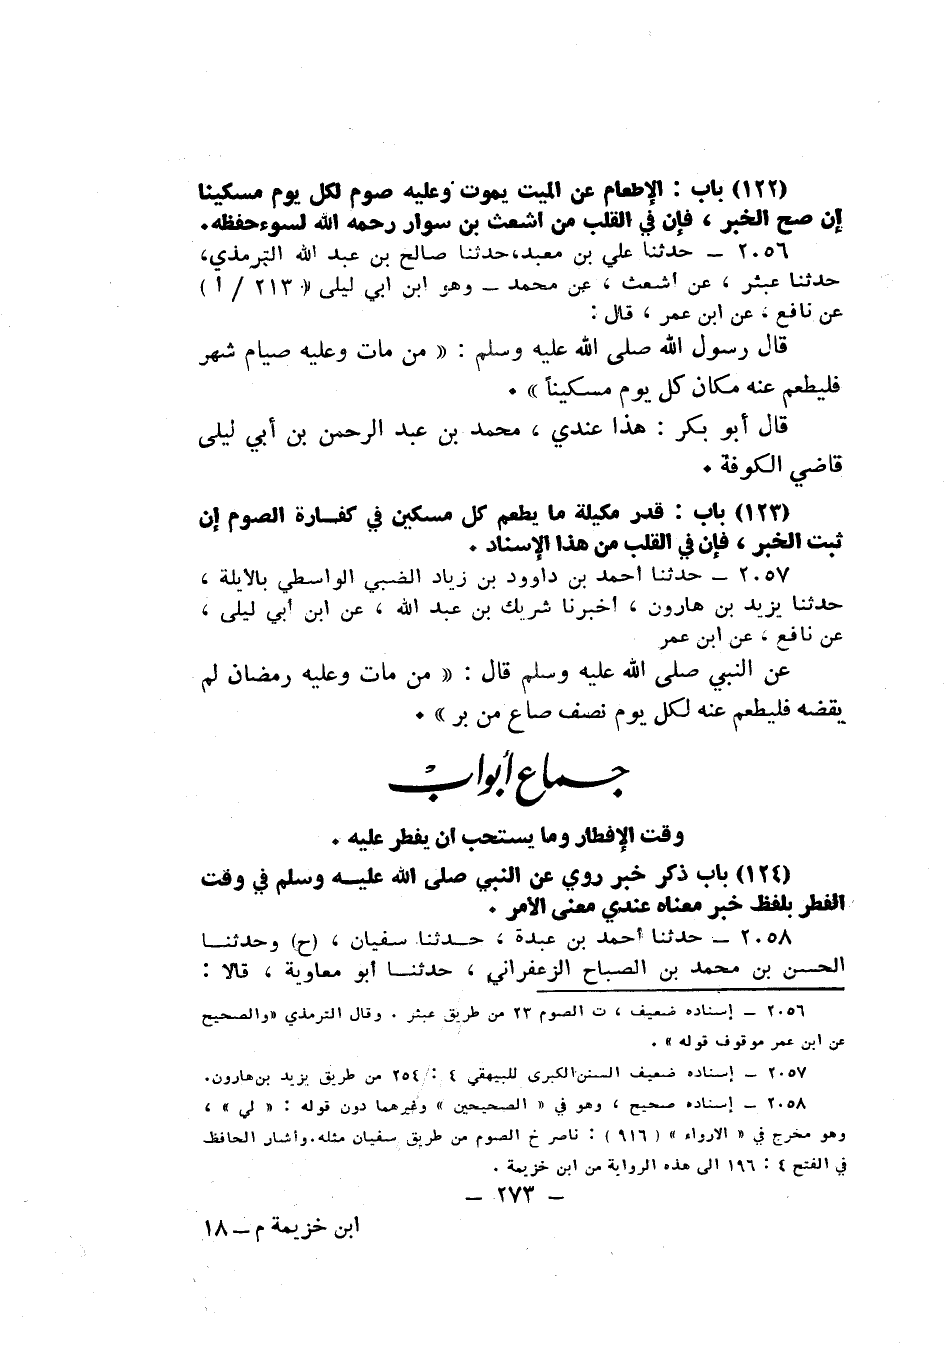 (١٢٢) باب : الإطعام عن الميت يموت وعليه صوم لكل يوم مسكينا
إن صح الخبر ، فإن في القلب من أشعث بن سوار رحمه الله لسوء حفظه .
٢٠٥٦ – حدثنا علي بن معبد، حدثنا صالح بن عبد الله الترمذي،
حدثنا عبثر ، عن أشعث ، عن محمد – وهو ابن ابي ليلى ( ٢١٣ / أ )
عن نافع ، عن ابن عمر ، قال :
قال رسول الله صلى الله عليه وسلم : « من مات وعليه صيام شهر
فليطعم عنه مكان كل يوم مسكيناً » .
قال أبو بكر : هذا عندي ، محمد بن عبد الرحمن بن أبي ليلى
قاضي الكوفة .
(١٢٣) باب : قدر مكيلة ما يطعم كل مسكين في كفارة الصوم إن
ثبت الخبر ، فإن في القلب من هذا الإسناد .
٢٠٥٧ – حدثنا أحمد بن داوود بن زياد الضبي الواسطي بالايلة ،
حدثنا يزيد بن هارون ، أخبرنا شريك بن عبد الله ، عن ابن أبي ليلى ،
عن نافع ، عن ابن عمر
عن النبي صلى الله عليه وسلم قال : « من مات وعليه رمضان لم
يقضه فليطعم عنه لكل يوم نصف صاع من بر » .
جماع أبواب
وقت الإفطار وما يستحب ان يفطر عليه .
(١٢٤) باب ذكر خبر روي عن النبي صلى الله عليه وسلم في وقت
الفطر بلفظ خبر معناه عندي معنى الأمر .
٢٠٥٨ – حدثنا أحمد بن عبدة ، حدثنا سفيان ، (ح) وحدثنا
الحسن بن محمد بن الصباح الزعفراني ، حدثنا أبو معاوية ، قالا :
٢٠٥٦ – إسناده ضعيف ، ت الصوم ٢٣ من طريق عبثر . وقال الترمذي «والصحيح
عن ابن عمر موقوف قوله » .
٢٠٥٧ – إسناده ضعيف السنن الكبرى للبيهقي ٤ : ٢٥٤ من طريق يزيد بن هارون.
٢٠٥٨ – إسناده صحيح ، وهو في « الصحيحين » وغيرهما دون قوله : « لي » ،
وهو مخرج في « الارواء » ( ٩١٦ ) : ناصر خ الصوم من طريق سفيان مثله.وأشار الحافظ
في الفتح ٤ : ١٩٦ الى هذه الرواية من ابن خزيمة .
– ٢٧٣ –
ابن خزيمة م – ١٨